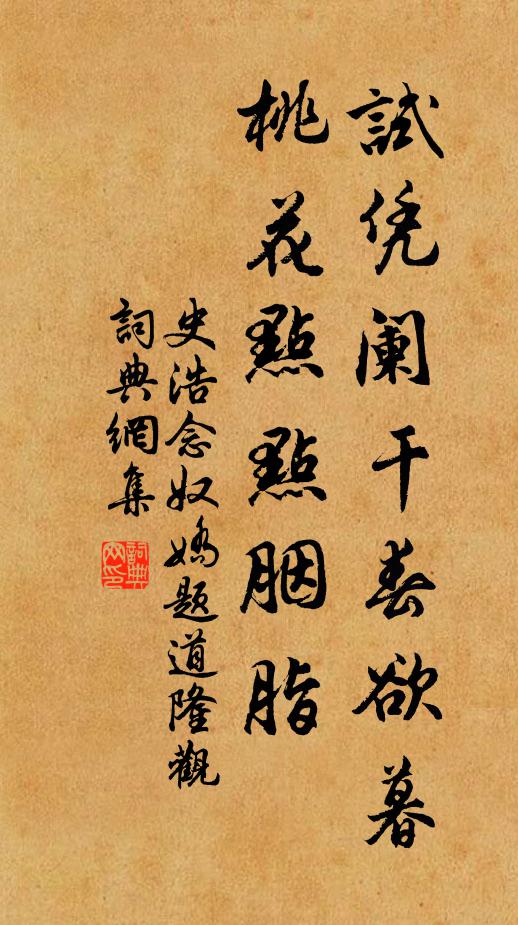 試凭阑干春欲暮
桃花點點胭脂
史浩念奴嬌題道隆觀
詞典網集
詞典网印